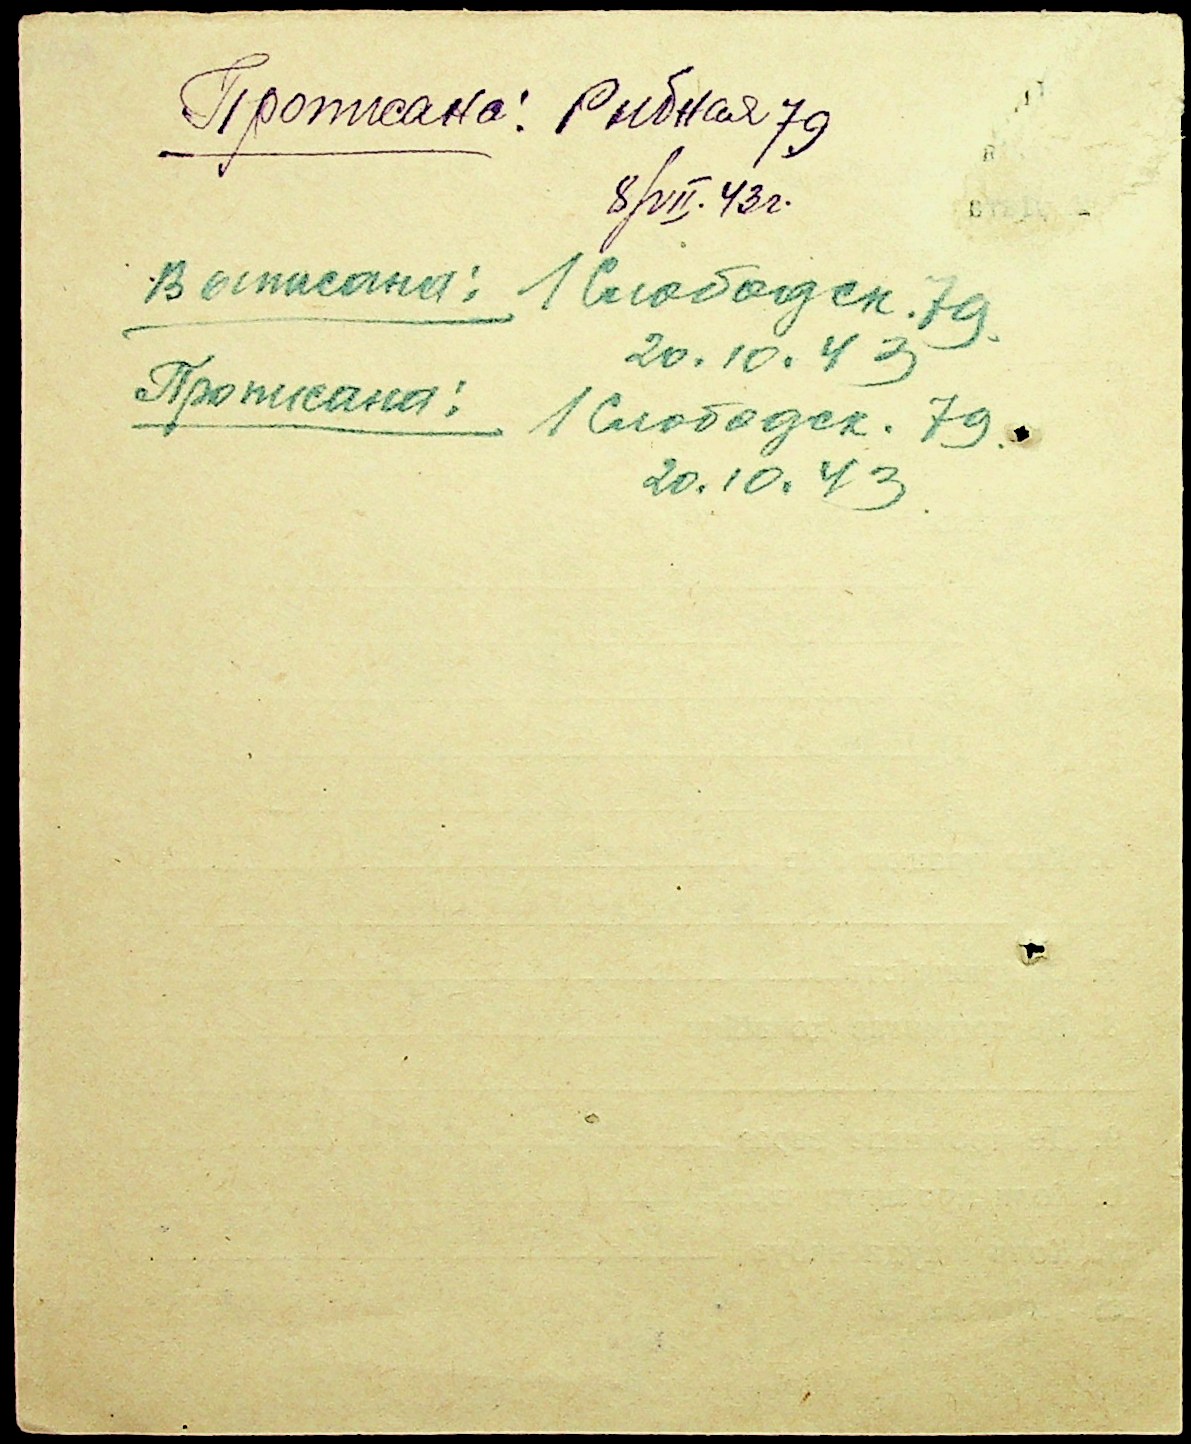 Прописана: Рибная 79
8/VII. 43 г.
Выписана: 1 Слободск. 79.
20.10.43
Прописана: 1 Слободск. 79.
20.10.43